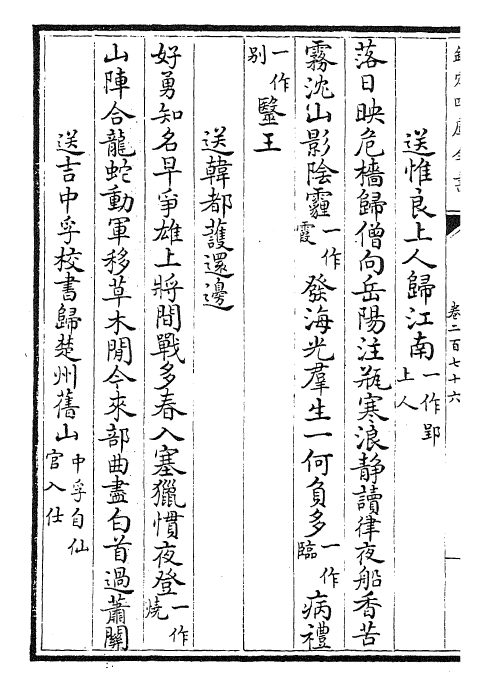 欽定四庫全書
卷二百七十六
送惟良上人歸江南一作郢上人
落日映危檣歸僧向岳陽注瓶寒浪静讀律夜船香苦
霧沈山影陰霾一作霞發海光羣生一何負多一作臨病禮
一作别毉王
送韓都護還邊
好勇知名早爭雄上將間戰多春入塞獵慣夜登一作燒
山陣合龍蛇動軍移草木閒今來部曲盡白首過蕭關
送吉中孚校書歸楚州舊山中孚自仙官入仕